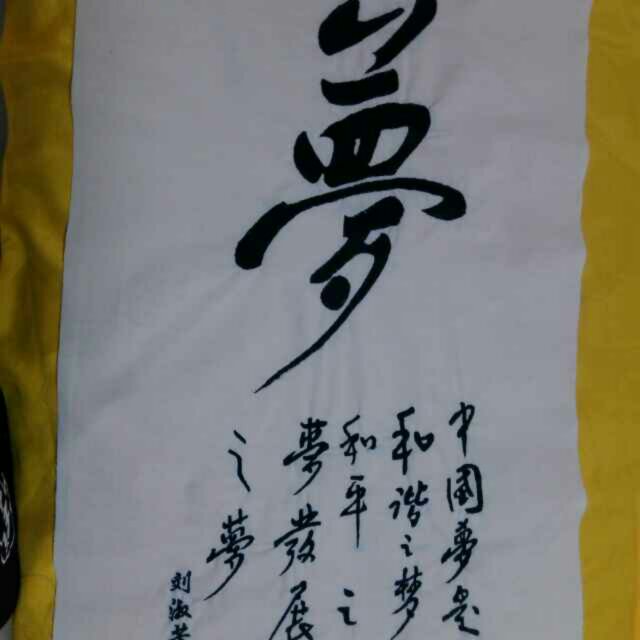 夢
中國夢是
和谐之梦
和平之
夢發展
之夢
刘淑